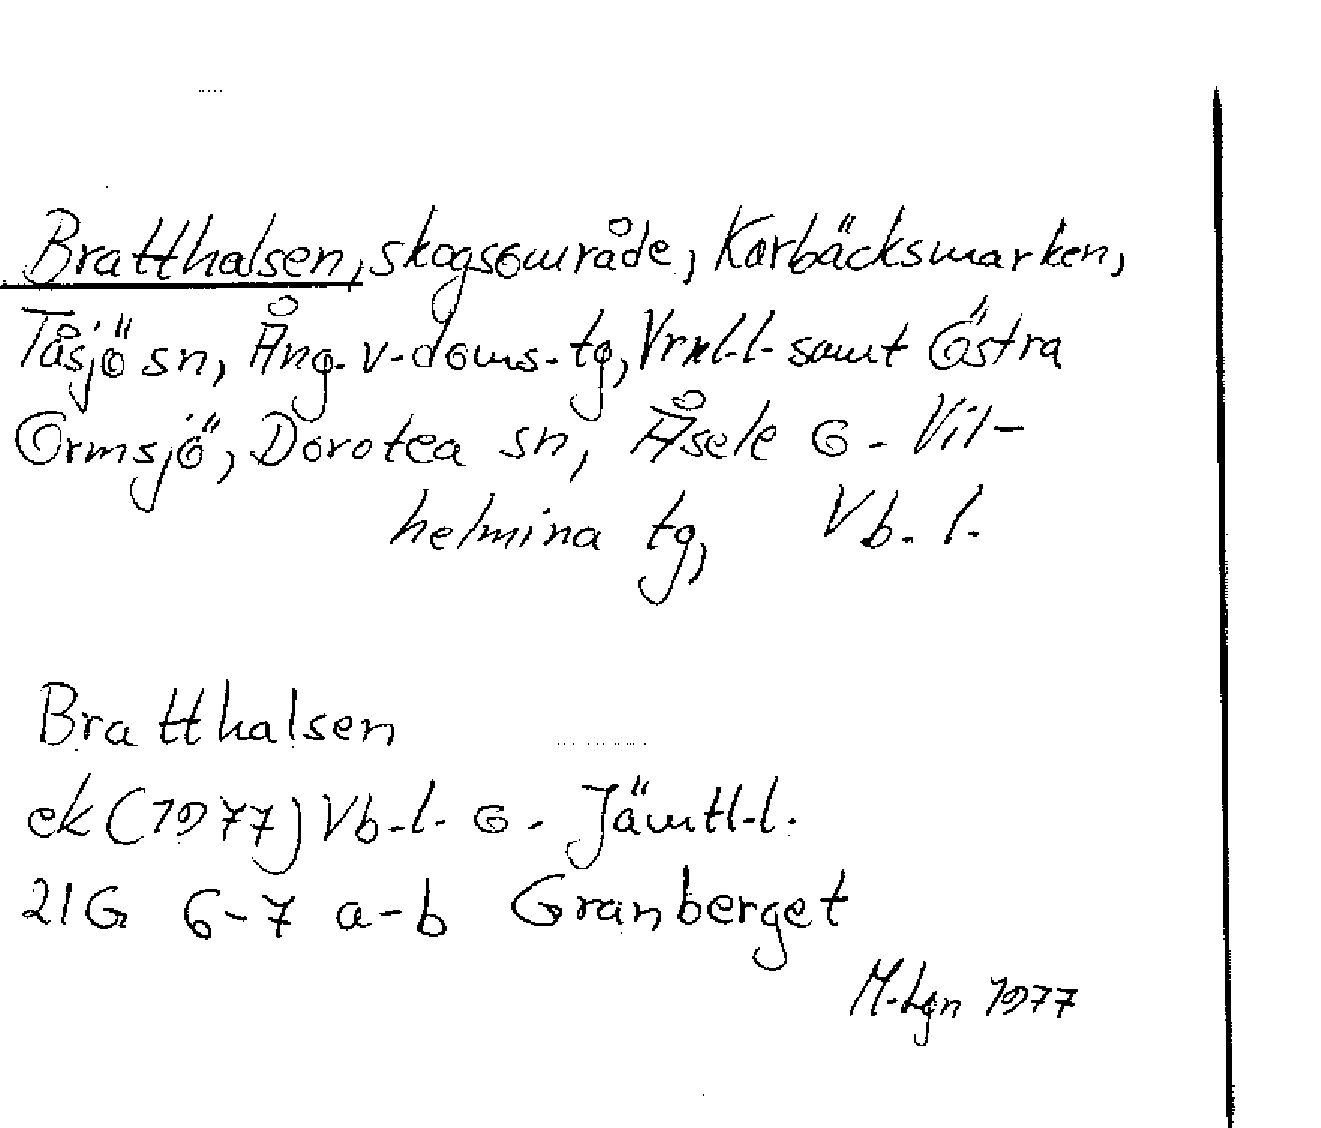 Bratthalsen, skogsområde, Karbäcksmarken,
Tåsjö sn, Ång. v-doms. tg, Vrnl-l. samt Östra
Ormsjö, Dorotea sn, Åsele o. Vil-
helmina tg, Vb. l.
Bratthalsen
ek (1977) Vb-l. o. Jämtl-l.
21G 6-7 a-b Granberget
1977